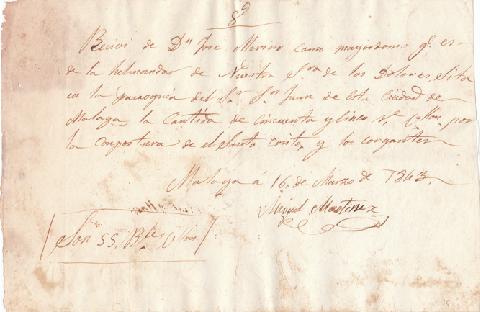 Recivi de Dn Jose Moreno como mayordomo q. es
de la hermandad de Nuestra Sra de los Dolores, Sita
en la parroquia del Sr Sn Juan de esta Ciudad de
Malaga la Cantida de Cincuenta y Cinco rs Vellon por
la conpostura de el Santo Cristo, y los
Malaga á 16, de Marzo de 1843.
Miguel Martinez
Son 55, Rs Vellon